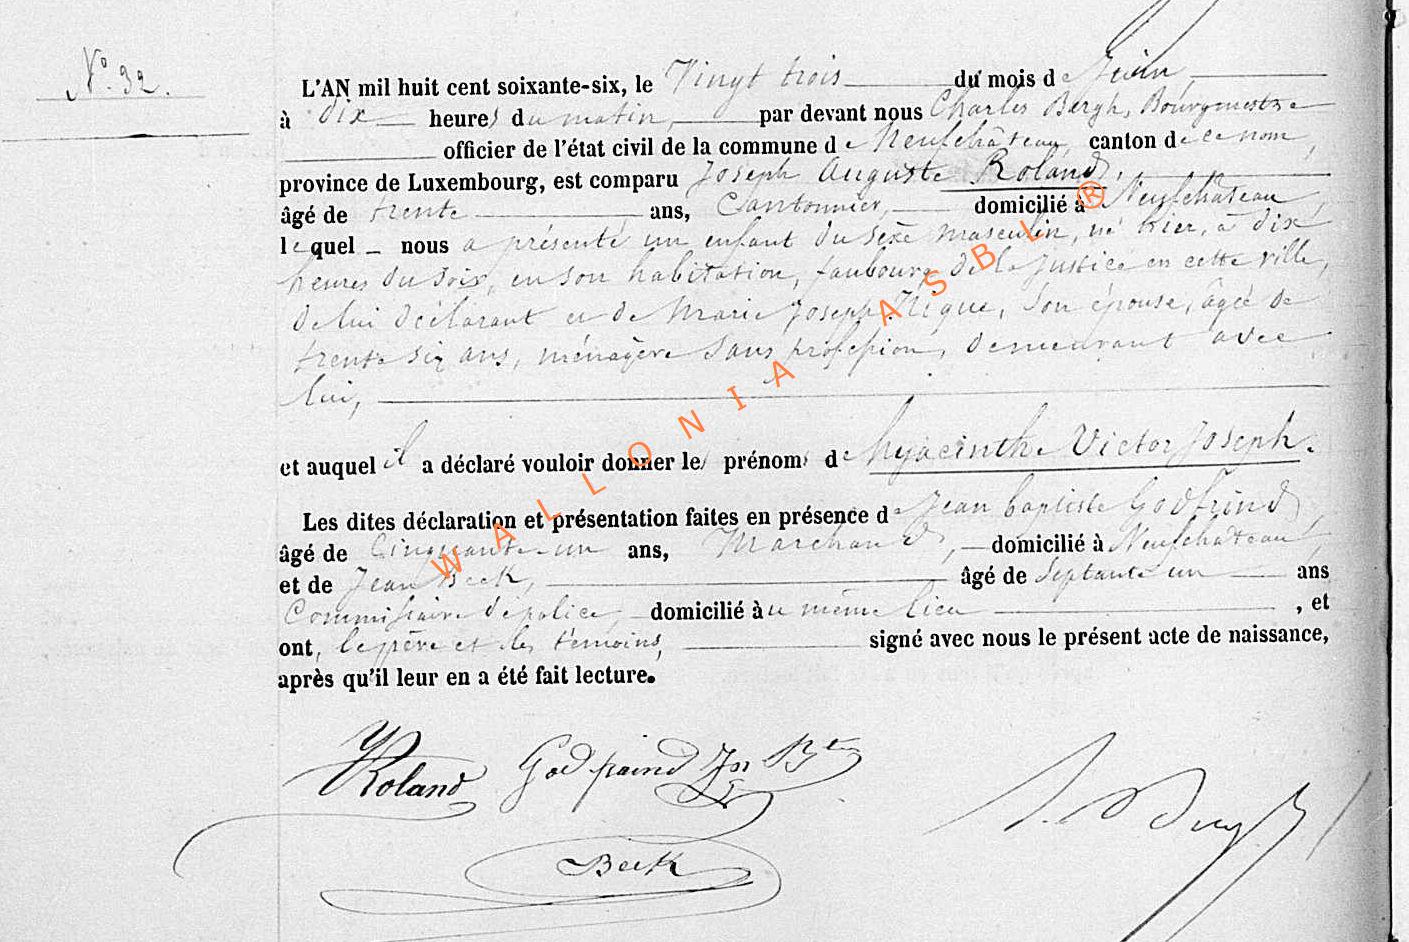 N° 32.
L'AN mil huit cent soixante-six, le Vingt trois du mois de Juin
à dix heures du matin, par devant nous Charles Bergh, Bourgmestre
officier de l'état civil de la commune de Neufchâteau, canton de ce nom,
province de Luxembourg, est comparu Joseph Auguste Roland,
âgé de trente ans, Cantonnier, domicilié à Neufchâteau,
lequel nous a présenté un enfant du sexe masculin, né hier, à dix
heures du soir, en son habitation, faubourg de la Justice en cette ville,
de lui déclarant et de Marie Joseph, son épouse, âgée de
trente six ans, ménagère sans profession, demeurant avec
lui,
et auquel il a déclaré vouloir donner les prénoms de hyacinthe Victor Joseph.
Les dites déclaration et présentation faites en présence de Jean baptiste Godfrind,
âgé de Cinquante-un ans, Marchand, domicilié à Neufchâteau,
et de Jean Beck, âgé de Septante un ans
Commissaire de police, domicilié au même lieu, et
ont, le père et les témoins, signé avec nous le présent acte de naissance,
après qu'il leur en a été fait lecture.
Roland Godfraind Jn Bte
Beck
WALLONIA ASBL ®